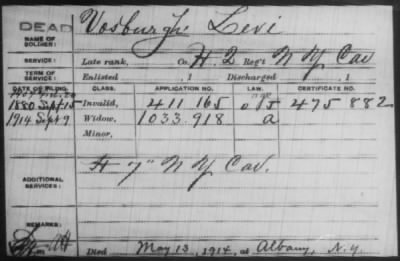 DEAD
NAME OF SOLDIER: Vosburgh Levi
SERVICE: Late rank, Co. H. 2 Reg't N Y Cav
TERM OF SERVICE: Enlisted , 1 Discharged , 1
DATE OF FILING. CLASS. APPLICATION NO. LAW. CERTIFICATE NO.
1880 Sept 15 Invalid, 411 165 475 882
1914 Sept 9 Widow, 1033.918 a
Minor,
H 7" N Y Cav.
ADDITIONAL SERVICES:
REMARKS:
Died May 13, 1914, at Albany, N.Y.